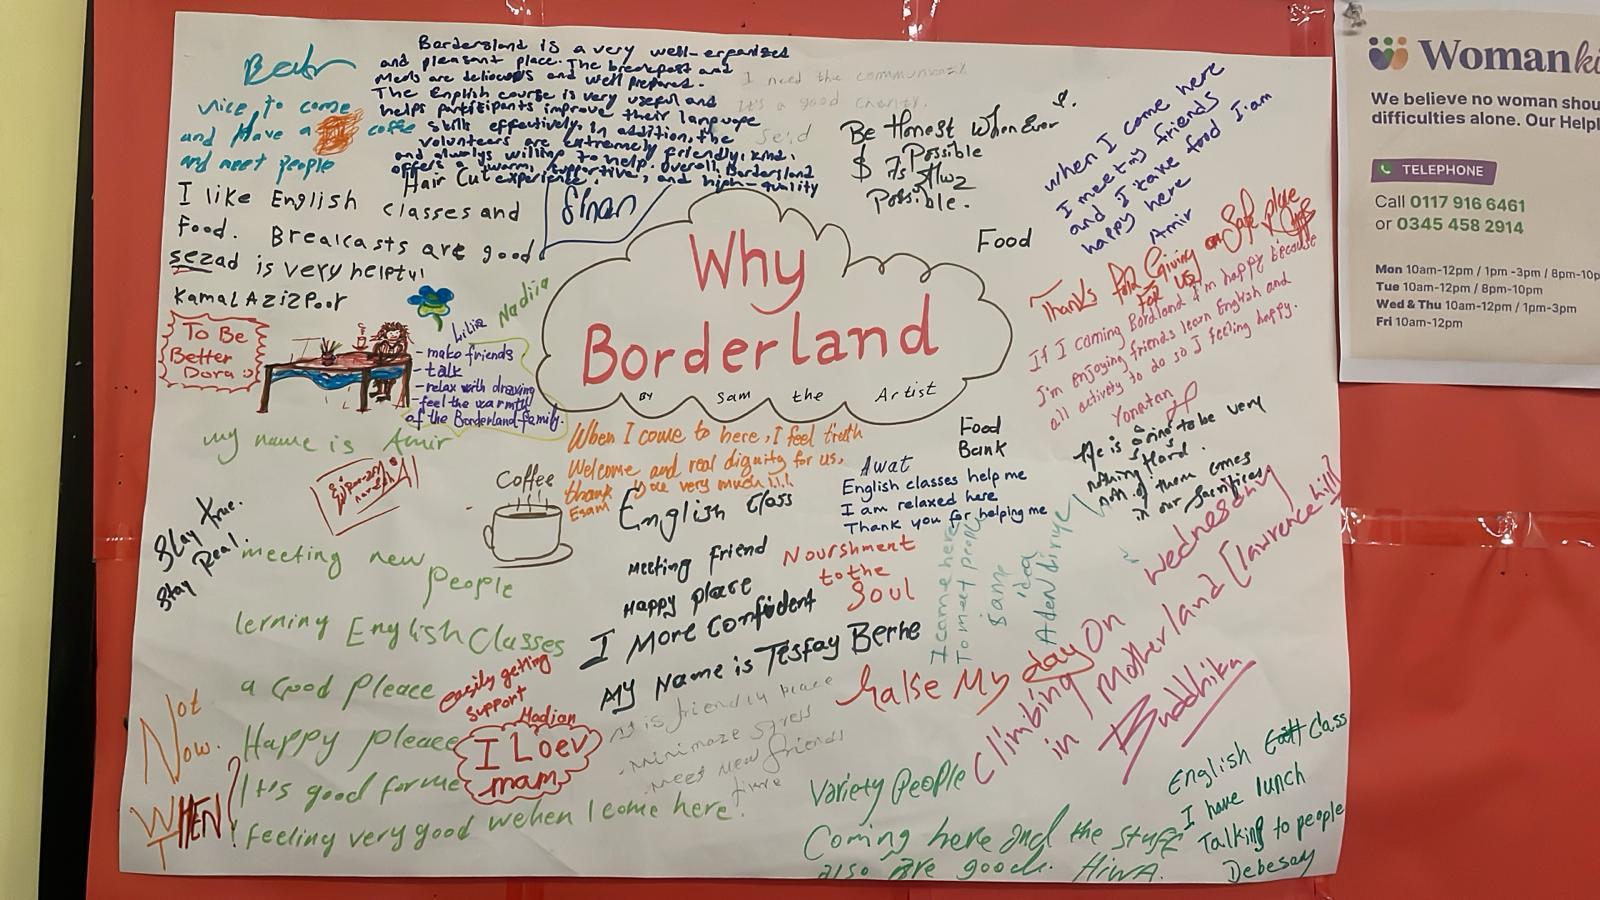 Why
Borderland
BY Sam the Artist
Bordersland is a very well-organized
and pleasant place. The breakfast and
Meals are delicious and well prepared.
The English course is very useful and
helps participants improve their language
skills effectively. In addition, the
volunteers are extremely friendly, kind,
and always willing to help. Overall, Bordersland
offers a warm, supportive, and high-quality
experience.
Sinan
nice to come
and Have a coffe
and meet people
Hair Cut
I like English classes and
Food. Breakcasts are good
sezad is very helpful
Kamal AZizpoor
I need the communicaty
It's a good charity.
Be Honest WhenEver
$ 7s Possible
Possible.
when I come here
I meet my friends
and I take food I am
happy here
Amir
Food
Thanks for Giving Safe place
FOR US
If I coming Bordland I'm happy because
I'm enjoying friends learn English and
all actively to do so I feeling happy.
Yonatan
Nadiia
To Be
Better
Dora :)
Lilia
- make friends
- talk
- relax with drawing
- feel the warmth
of the Borderland family.
my name is Amir
meeting new
people
lerning English Classes
a Good Pleace
Happy pleace
It's good for me
feeling very good wehen I come here.
Stay true.
Stay Real.
Coffee
When I come to here, I feel truth
Welcome and real dignity for us,
thank you very much!.!.!.
Esam
Food
Bank
Awat
English classes help me
I am relaxed here
Thank you for helping me
life is to be very
nothing Hard.
not of them comes
in our Sacrifices
English Class
Meeting friend
Happy place
I More Confident
My Name is Tesfay Berhe
Nourshment
to the
Soul
I come here
To meet people
same
idea
Aden dirye
easily getting
support
Madian
I Loev
mam
is friendly place
- minimaze stress
- meet new friends
time
Not
Now.
WHEN?
Make My day On Wednesday
Climbing
in Motherland [lawrence hill]
Buddhika
Variety People
Coming here and the stuff
also are good. HiwA.
English Class
I have lunch
Talking to people
Debesay
Womanki
We believe no woman shou
difficulties alone. Our Help
TELEPHONE
Call 0117 916 6461
or 0345 458 2914
Mon 10am-12pm / 1pm -3pm / 8pm-10p
Tue 10am-12pm / 8pm-10pm
Wed & Thu 10am-12pm / 1pm-3pm
Fri 10am-12pm